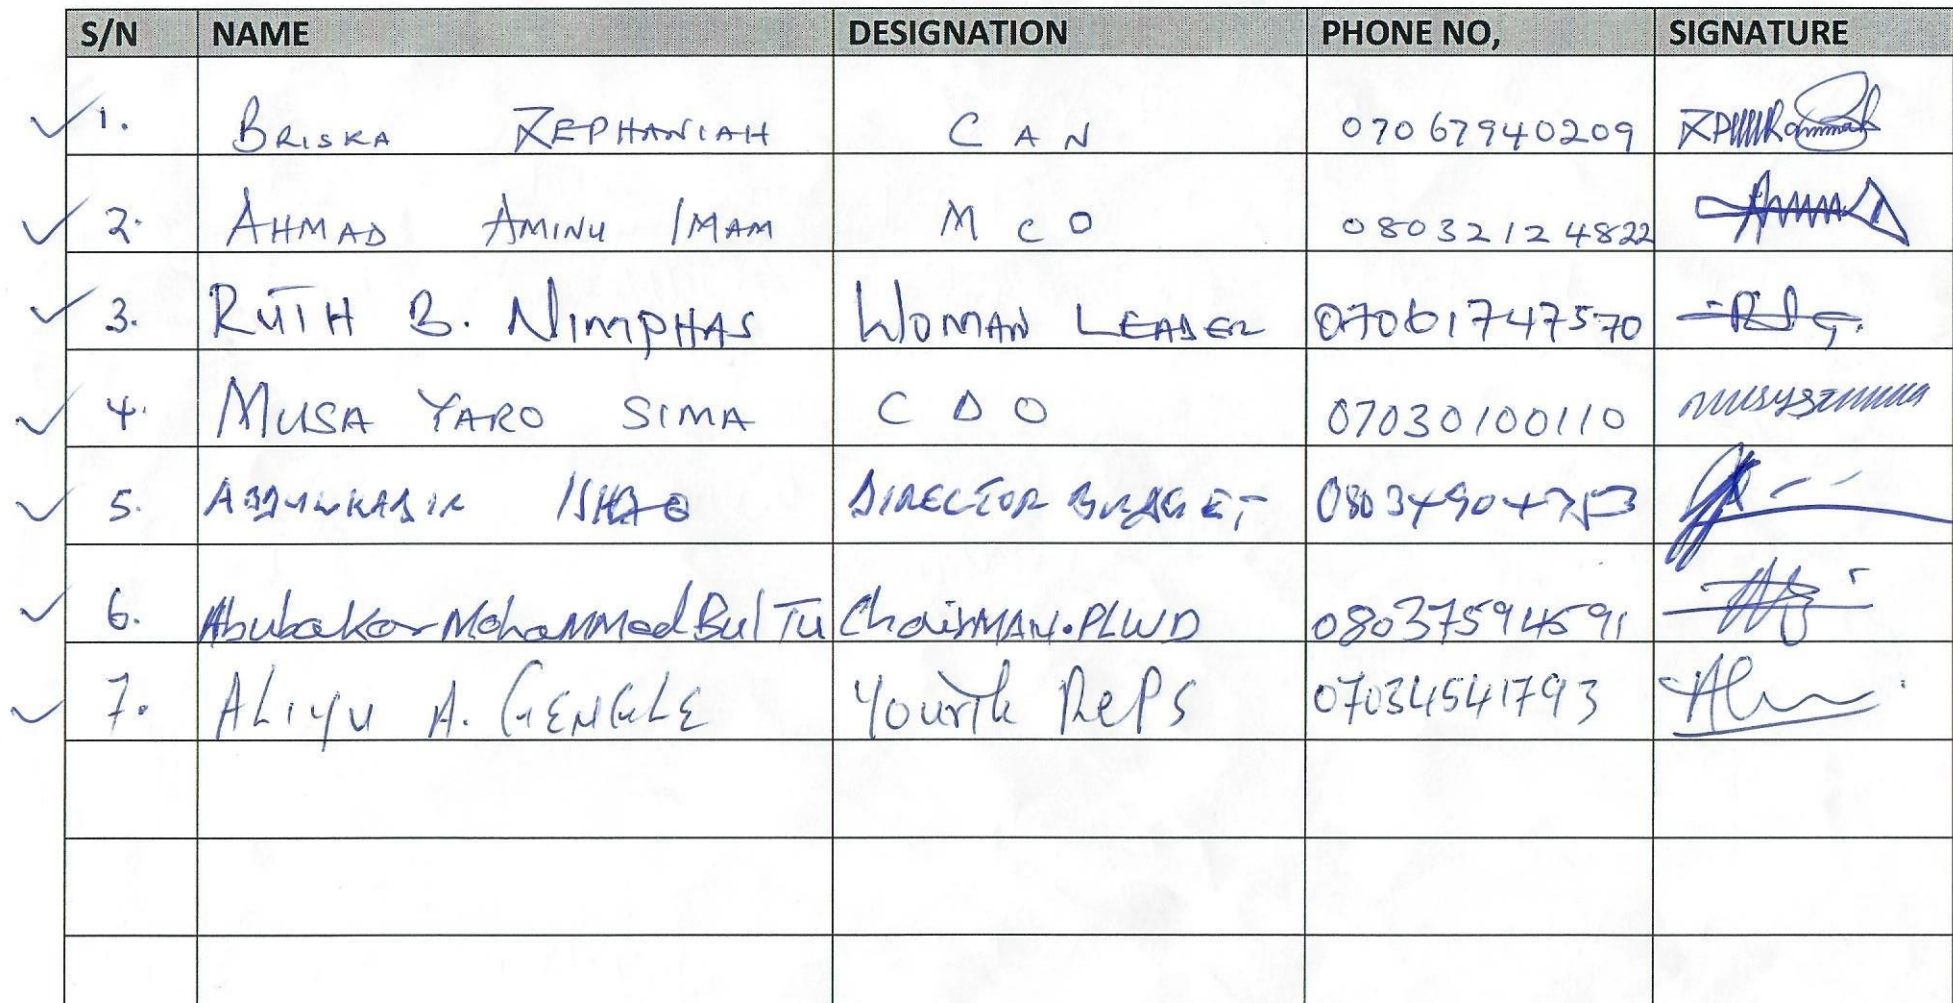 S/N NAME DESIGNATION PHONE NO, SIGNATURE
1. BRISKA ZEPHANIAH C A N 07067940209
2. AHMAD AMINU IMAM M C O 08032124822
3. RUTH B. NIMPHAS WOMAN LEADER 07061747570
4. MUSA YARO SIMA C D O 07030100110
5. ABDULKADIR DIRECTOR BUDGET
6. Abubakar Mohammed Bultu ChairMAN.PLWD 08037594591
7. ALIYU A. GENGLE Yourth RePS 07034541793